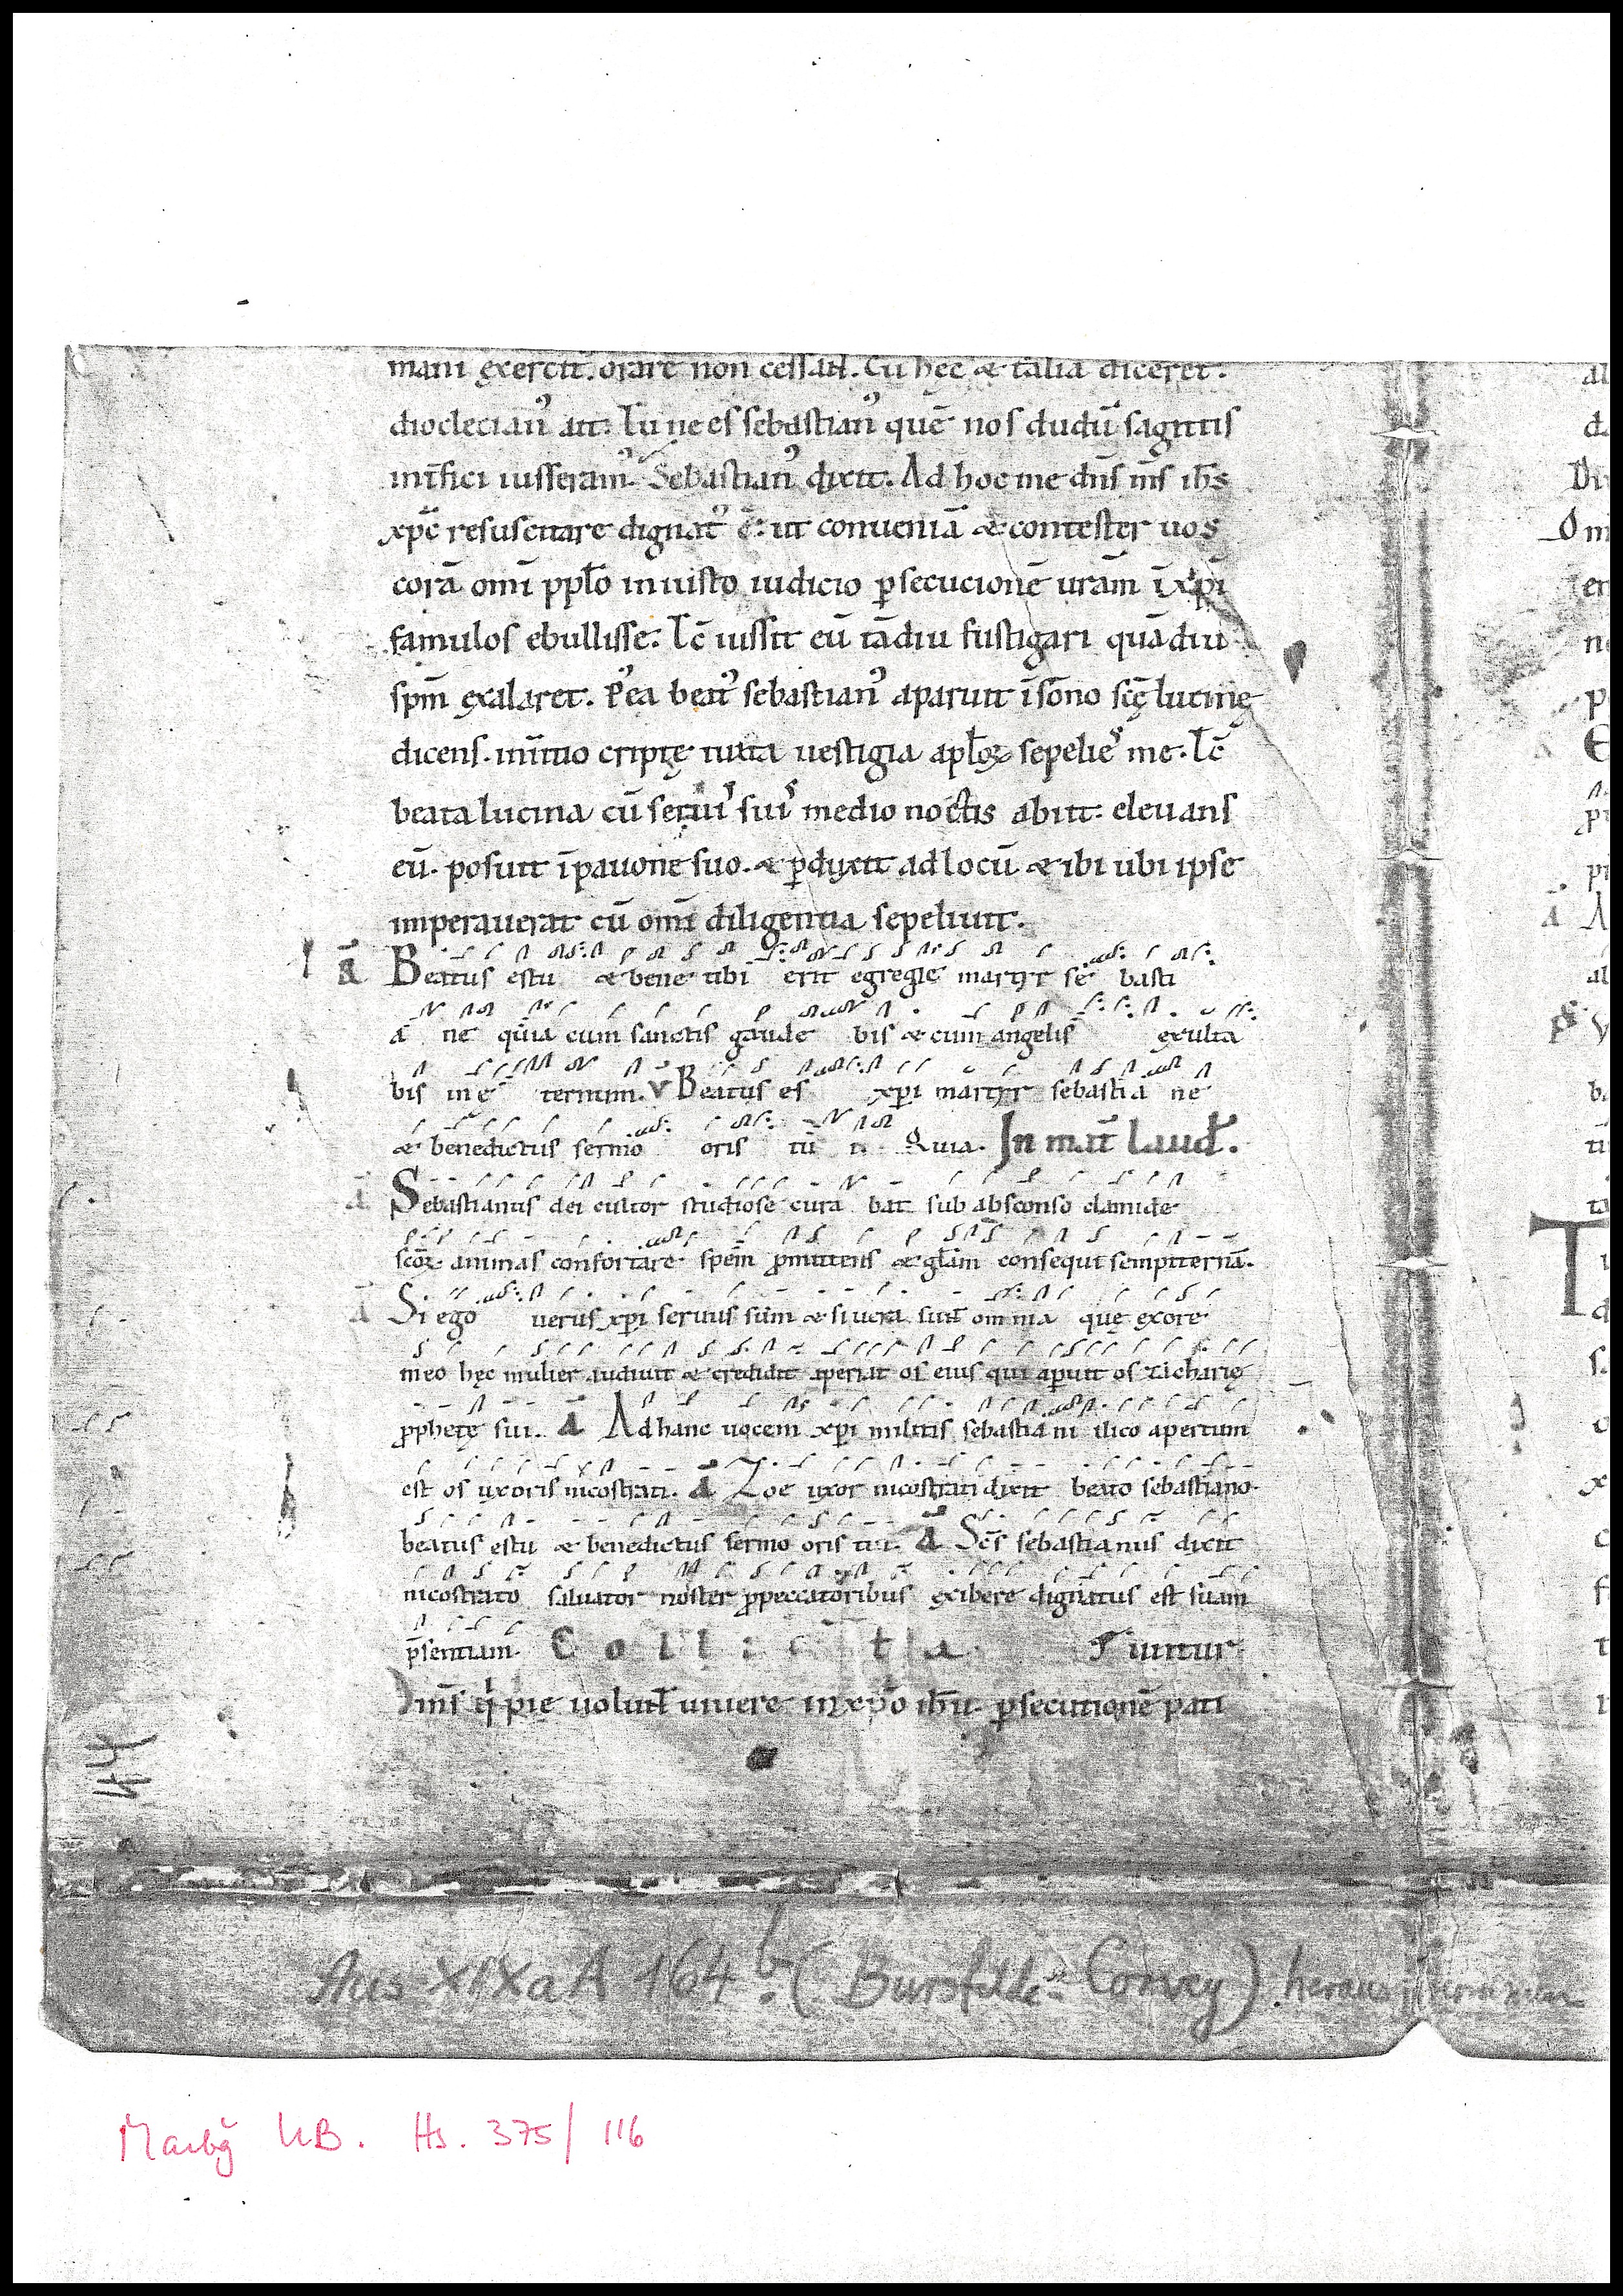 mani exercit᷒. orare non cessant. Cū hęc & talia diceret.
dioclecian᷒ ait: Tu ne es sebastian᷒ quē nos dudū sagittis
int̄fici iusseram᷒. Sebastian᷒ dixit. Ad hoc me dn̄s nr̄s ih̄s
xp̄c resuscitare dignat᷒ ē: ut conueniā & contester uos
corā om̄i ppl̄o iniusto iudicio ꝑsecucionē ur̄am ī xp̄i
famulos ebullisse. Tc̄ iussit eū tādiu fustigari quādiu
sp̄m exalaret. P᷒ea beat᷒ sebastian᷒ aparuit ī sōno sc̄ę lucinę
dicens. in initio criptę iuxta uestigia apl̄oꝝ sepelies me. Tc̄
beata lucina cū seruis suis medio noctis abiit: eleuans
eū. posuit ī pauone suo. & ꝑduxit ad locū & ibi ubi ipse
imperauerat cū om̄i diligentia sepeliuit.
ā Beatus es tu & bene tibi erit egregie martyr se basti
a ne quia cum sanctis gaude bis & cum angelis exulta
bis in ę ternum. v Beatus es xp̄i martyr sebastia ne
& benedictus sermo oris tu i. Quia. In mat̄ laud̄.
ā Sebastianus dei cultor studiose cura bat sub absconso clamide
sc̄oꝝ animas confortare spem̄ ꝓmittens & gl̄am consequi sempiternā.
ā Si ego uerus xp̄i seruus sum & si uera sunt omnia que exore
meo hęc mulier audiuit & credidit aperiat os eius qui aꝑuit os zacharię
ꝓphetę sui. ā Ad hanc uocem xp̄i militis sebastiani ilico apertum
est os uxoris nicostrati. ā Zoe uxor nicostrati dixit beato sebastiano
beatus es tu & benedictus sermo oris tui. ā Sc̄s sebastianus dixit
nicostrato saluator noster ꝓpeccatoribus exibere dignatus est suam
p̄sentiam. Collecta
Om̄s q̇ pie uolunt uiuere in xp̄o ih̄u. ꝑsecutionē pati
44
Aus XIXaA 164b. (Bursfelde-Corvey) herausgenommen
Marbg UB. Hs. 375/116